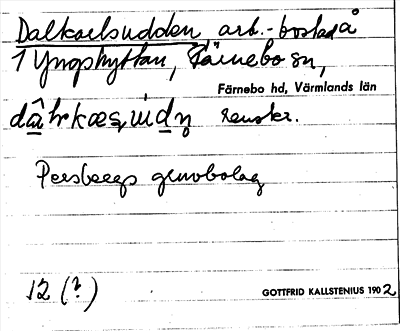 Dalkarlsudden arb.-bostad å
1 Yngshyttan, Färnebo sn,
Färnebo hd, Värmlands län
Persbergs gruvbolag
12 (?)
GOTTFRID KALLSTENIUS 1902